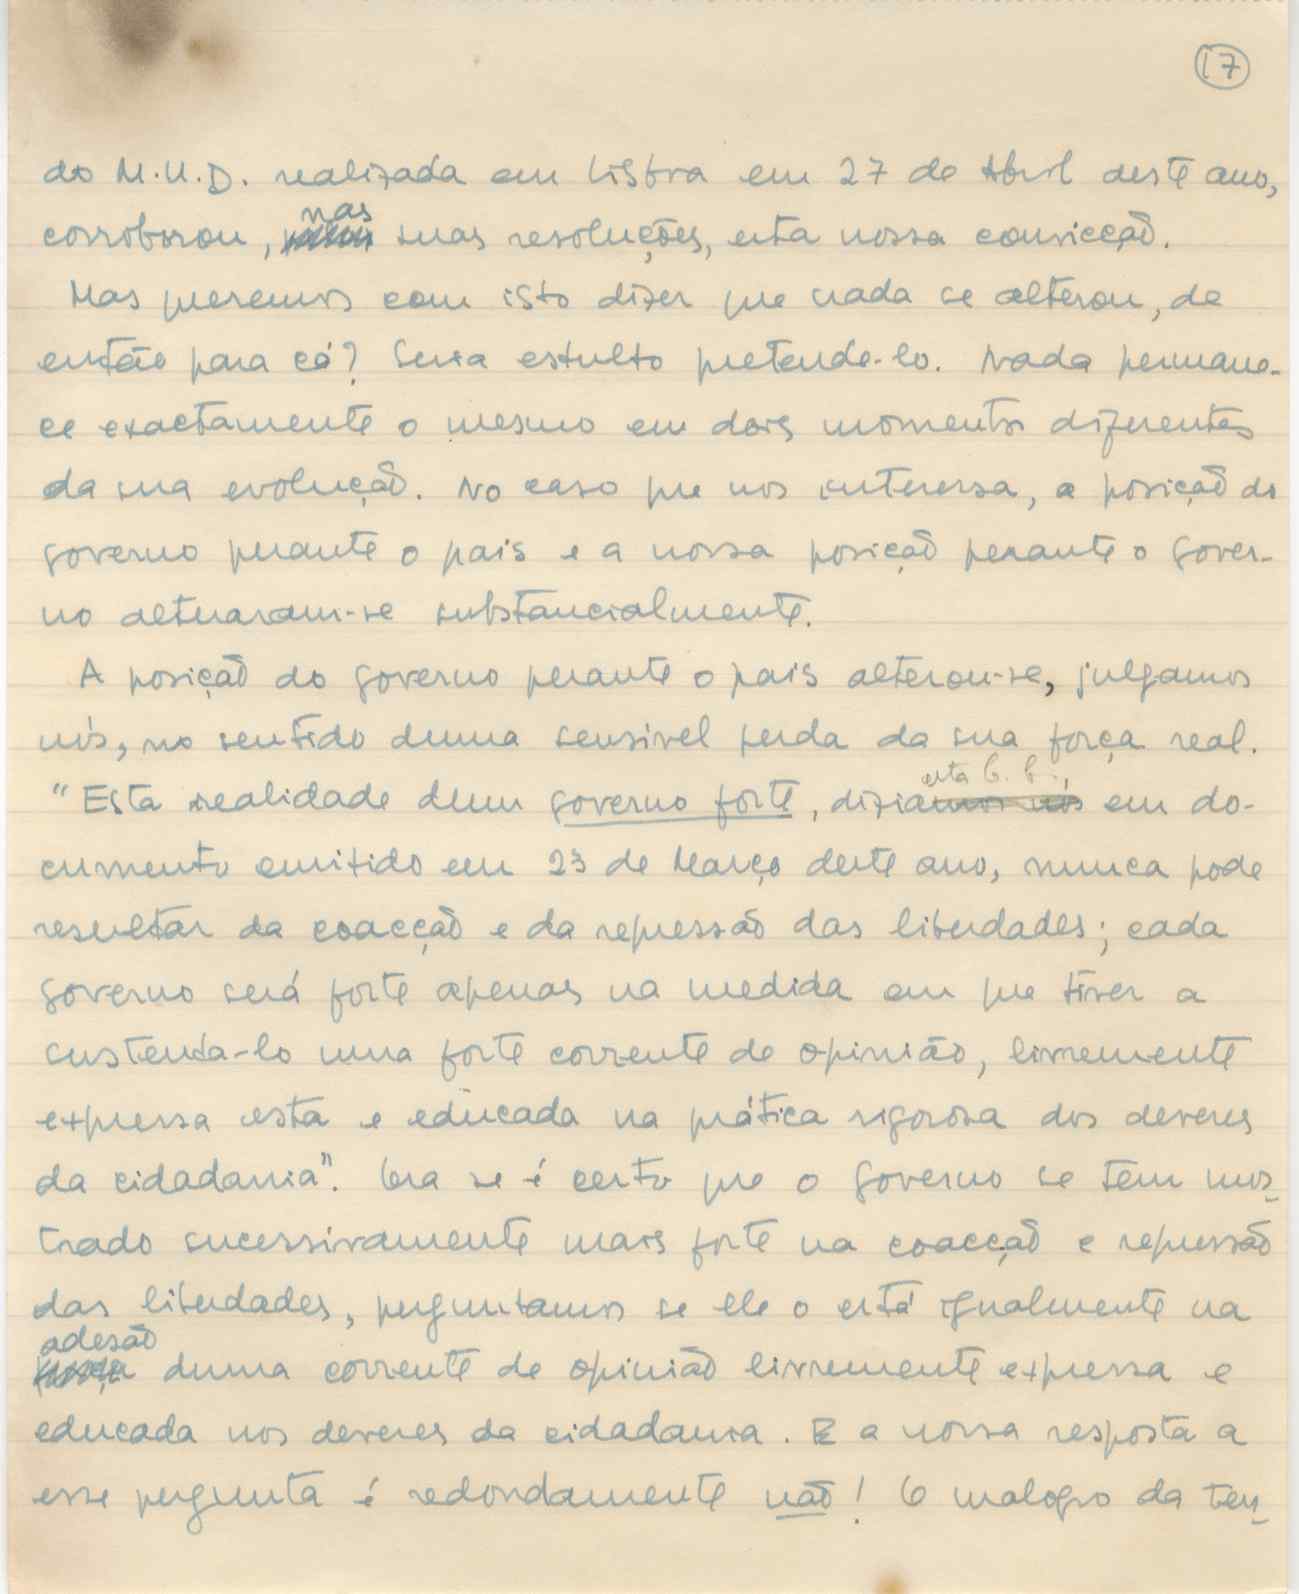 17
do M.U.D. realizada em Lisboa em 27 de Abril deste ano,
nas
corroborou, suas resoluções, esta nossa convicção.
Mas queremos com isto dizer que nada se alterou, de
então para cá? Seria estulto pretendê-lo. Nada permane-
ce exactamente o mesmo em dois momentos diferentes
da sua evolução. No caso que nos interessa, a posição do
governo perante o pais e a nossa posição perante o gover-
no alteraram-se substancialmente.
A posição do governo perante o pais alterou-se, julgamos
nós, no sentido duma sensivel perda da sua força real.
esta C. C.,
"Esta realidade dum governo forte, diziamos nós em do-
cumento emitido em 23 de Março deste ano, nunca pode
resultar da coacção e da repressão das liberdades; cada
governo será forte apenas na medida em que tiver a
sustentá-lo uma forte corrente de opinião, livremente
expressa esta e educada na prática rigorosa dos deveres
da cidadania". Ora se é certo que o governo se tem mos-
trado sucessivamente mais forte na coacção e repressão
das liberdades, perguntamos se ele o está igualmente na
adesão
duma corrente de opinião livremente expressa e
educada nos deveres da cidadania. E a nossa resposta a
esse pergunta é redondamente não! O malogro da ten-